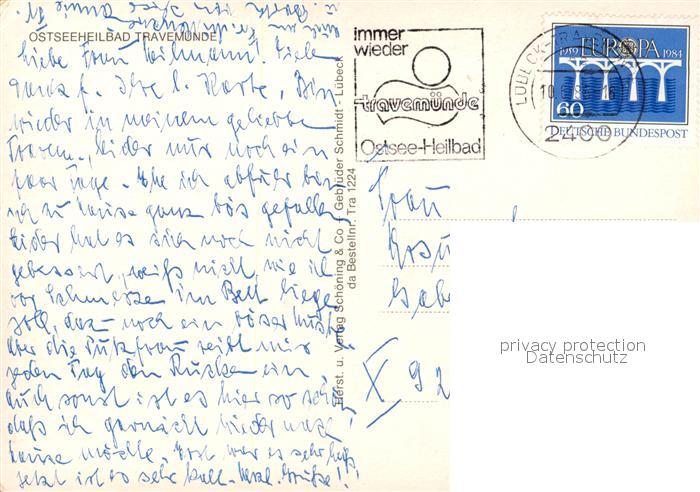 OSTSEEHEILBAD TRAVEMÜNDE
liebe Frau Vielen
Dank f. Ihre l. Karte, Bin
wieder in meinem geliebten
Traven., leider nur noch ein
paar Tage. Ehe ich abfuhr bin
ich zu Hause ganz bös gefallen,
leider hat es sich noch nicht
gebessert, weiß nicht wie ich
vor Schmerzen im Bett liegen
soll, dazu noch ein böser Husten
Aber die Putzfrau reibt mir
jeden Tag den Rücken ein,
auch sonst ist es hier so schön
daß ich garnicht wieder nach
Hause möchte. Erst war es sehr heiß
jetzt ist es sehr kalt. Herzl. Grüße!
Herst. u. Verlag Schöning & Co + Gebrüder Schmidt - Lübeck
da Bestellnr. Tra 1224
immer
wieder
travemünde
Ostsee-Heilbad
LÜBECK-TRA
10.
2400
1959 EUROPA 1984
60
DEUTSCHE BUNDESPOST
Frau
Rosw
Gabe
X 92
privacy protection
Datenschutz